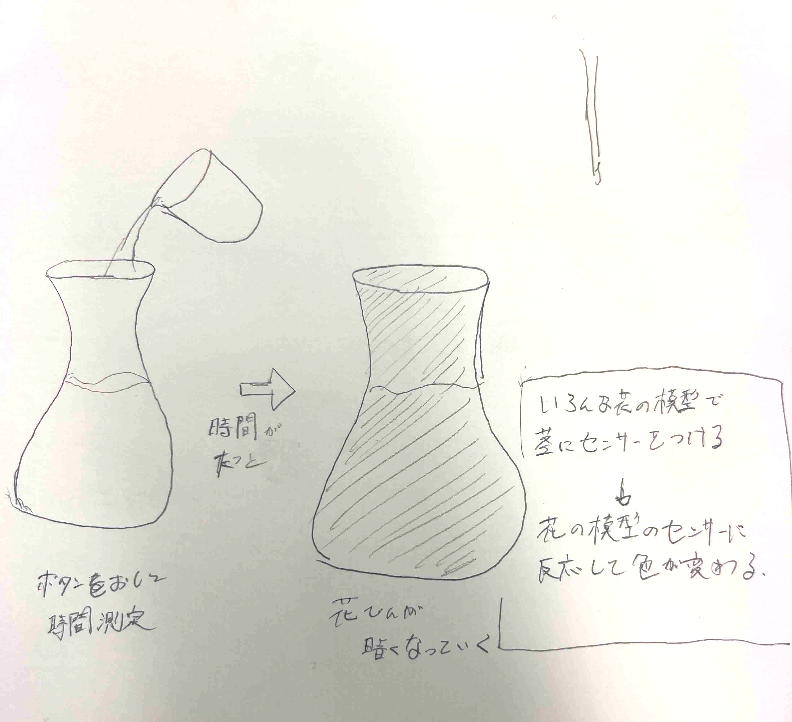 ボタンをおして
時間測定
時間が
たつと
花びんが
暗くなっていく
いろんな花の模型で
茎にセンサーをつける
↓
花の模型のセンサーに
反応して色が変わる。